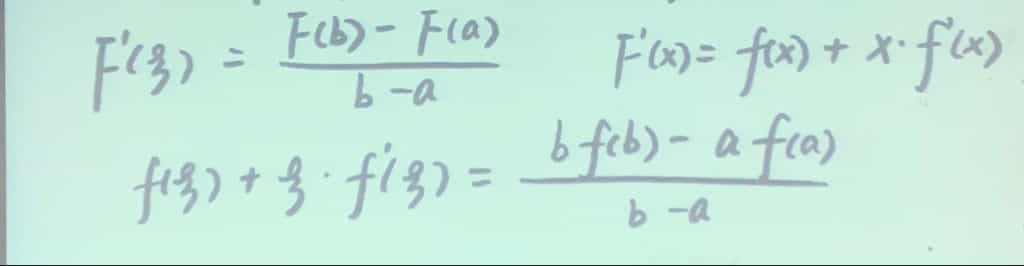 F'(ξ) = \frac{F(b) - F(a)}{b - a} F'(x) = f(x) + x · f'(x)
f(ξ) + ξ · f'(ξ) = \frac{b f(b) - a f(a)}{b - a}